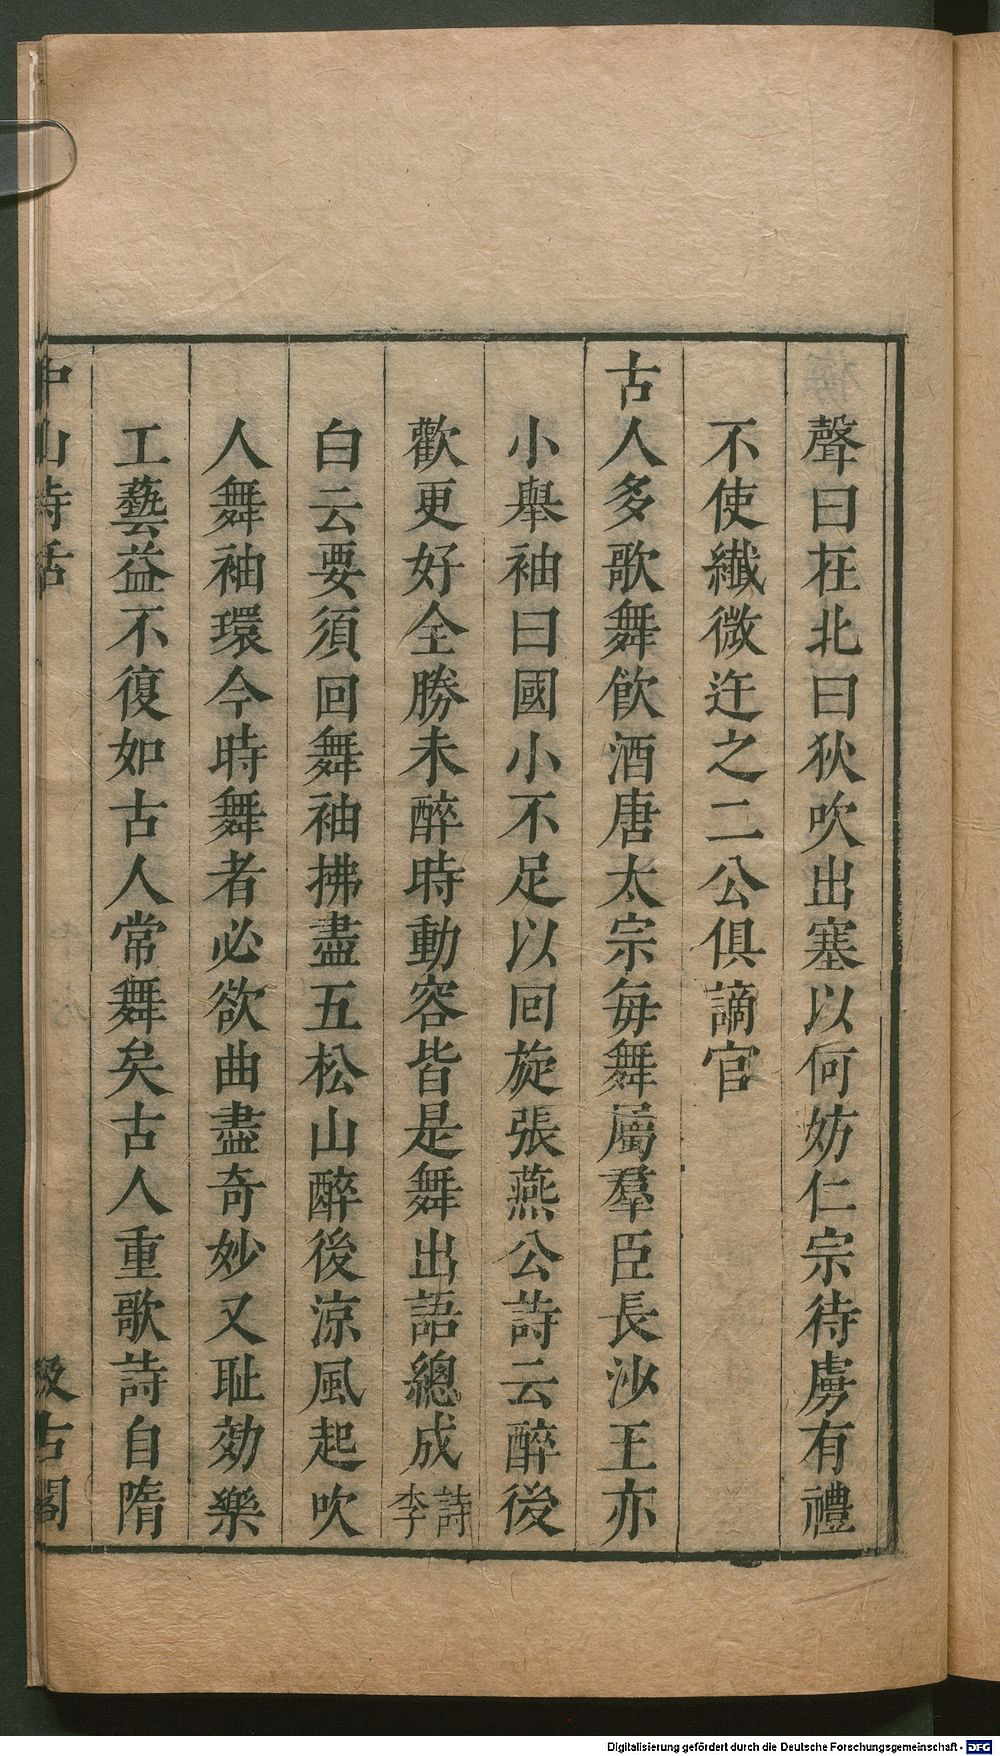 聲曰在北曰狄吹出塞以何妨仁宗待虜有禮
不使纎微迕之二公俱謫官
古人多歌舞飲酒唐太宗每舞屬羣臣長沙王亦
小舉袖曰國小不足以回旋張燕公詩云醉後
歡更好全勝未醉時動容皆是舞出語總成詩李
白云要須回舞袖拂盡五松山醉後涼風起吹
人舞袖環今時舞者必欲曲盡奇妙又耻効樂
工藝益不復如古人常舞矣古人重歌詩自隋
中山詩話
汲古閣
Digitalisierung gefördert durch die Deutsche Forschungsgemeinschaft - DFG